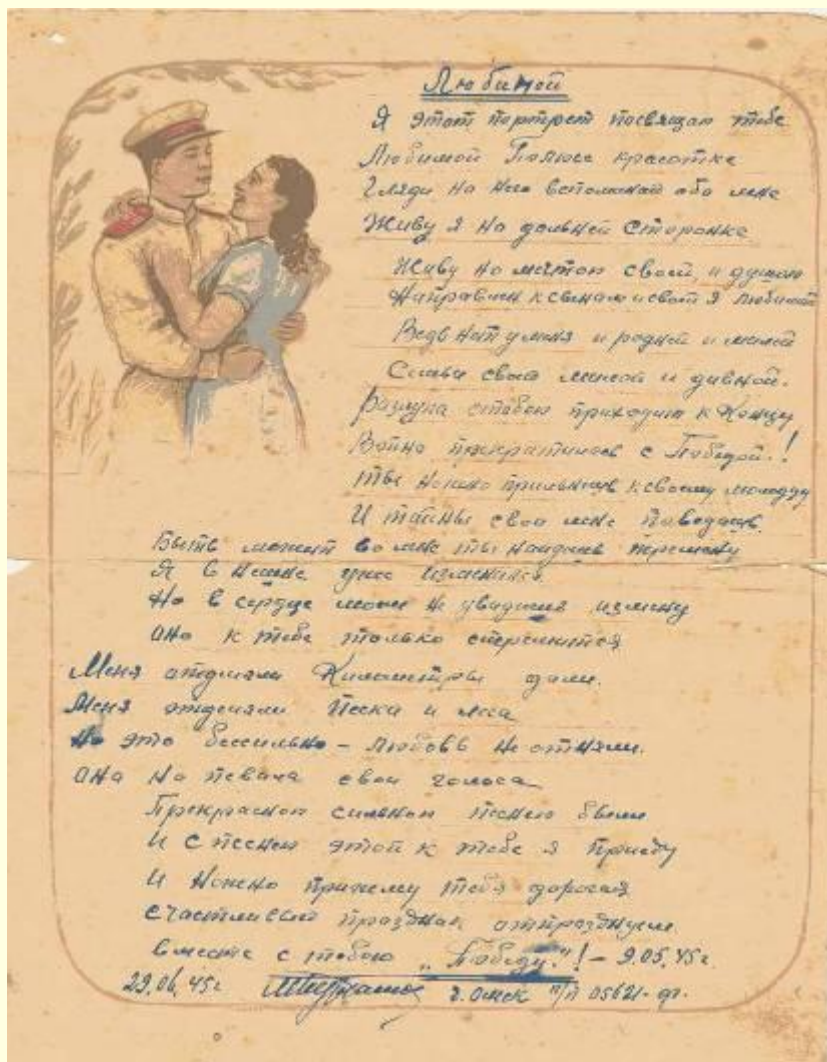 Любимой
Я этот портрет посвящаю тебе
Любимой Полюсе красотке
Гляди на него вспоминай обо мне
Живу я на дольней сторонке
Живу но мечтою своей, и душою
Направлен к своей я любимой
Ведь нет у меня и родней и милей
своей милой и дивной.
Разлука стобою приходит к концу
Война прекратилась с Победой.!
ты нежно прильнешь к своему молодцу
И тайны свои мне поведаешь.
Быть может во мне ты найдешь перемену
Я в уже изменился
Но в сердце моем не увидишь измену
оно к тебе только стремится
Меня отделяли Километры дали.
Меня отделяли Пески и леса
Но это бессильно – любовь не отняли.
она на певала свои голоса
Прекрасною сильною песнею были
И с песней этой к тебе я приеду
И нежно прижму тебя дорогая
счастливый праздник отпразднуем
вместе с тобою „Победу."! – 9.05.45г.
29.06.45г г. Омск п/я 05621-